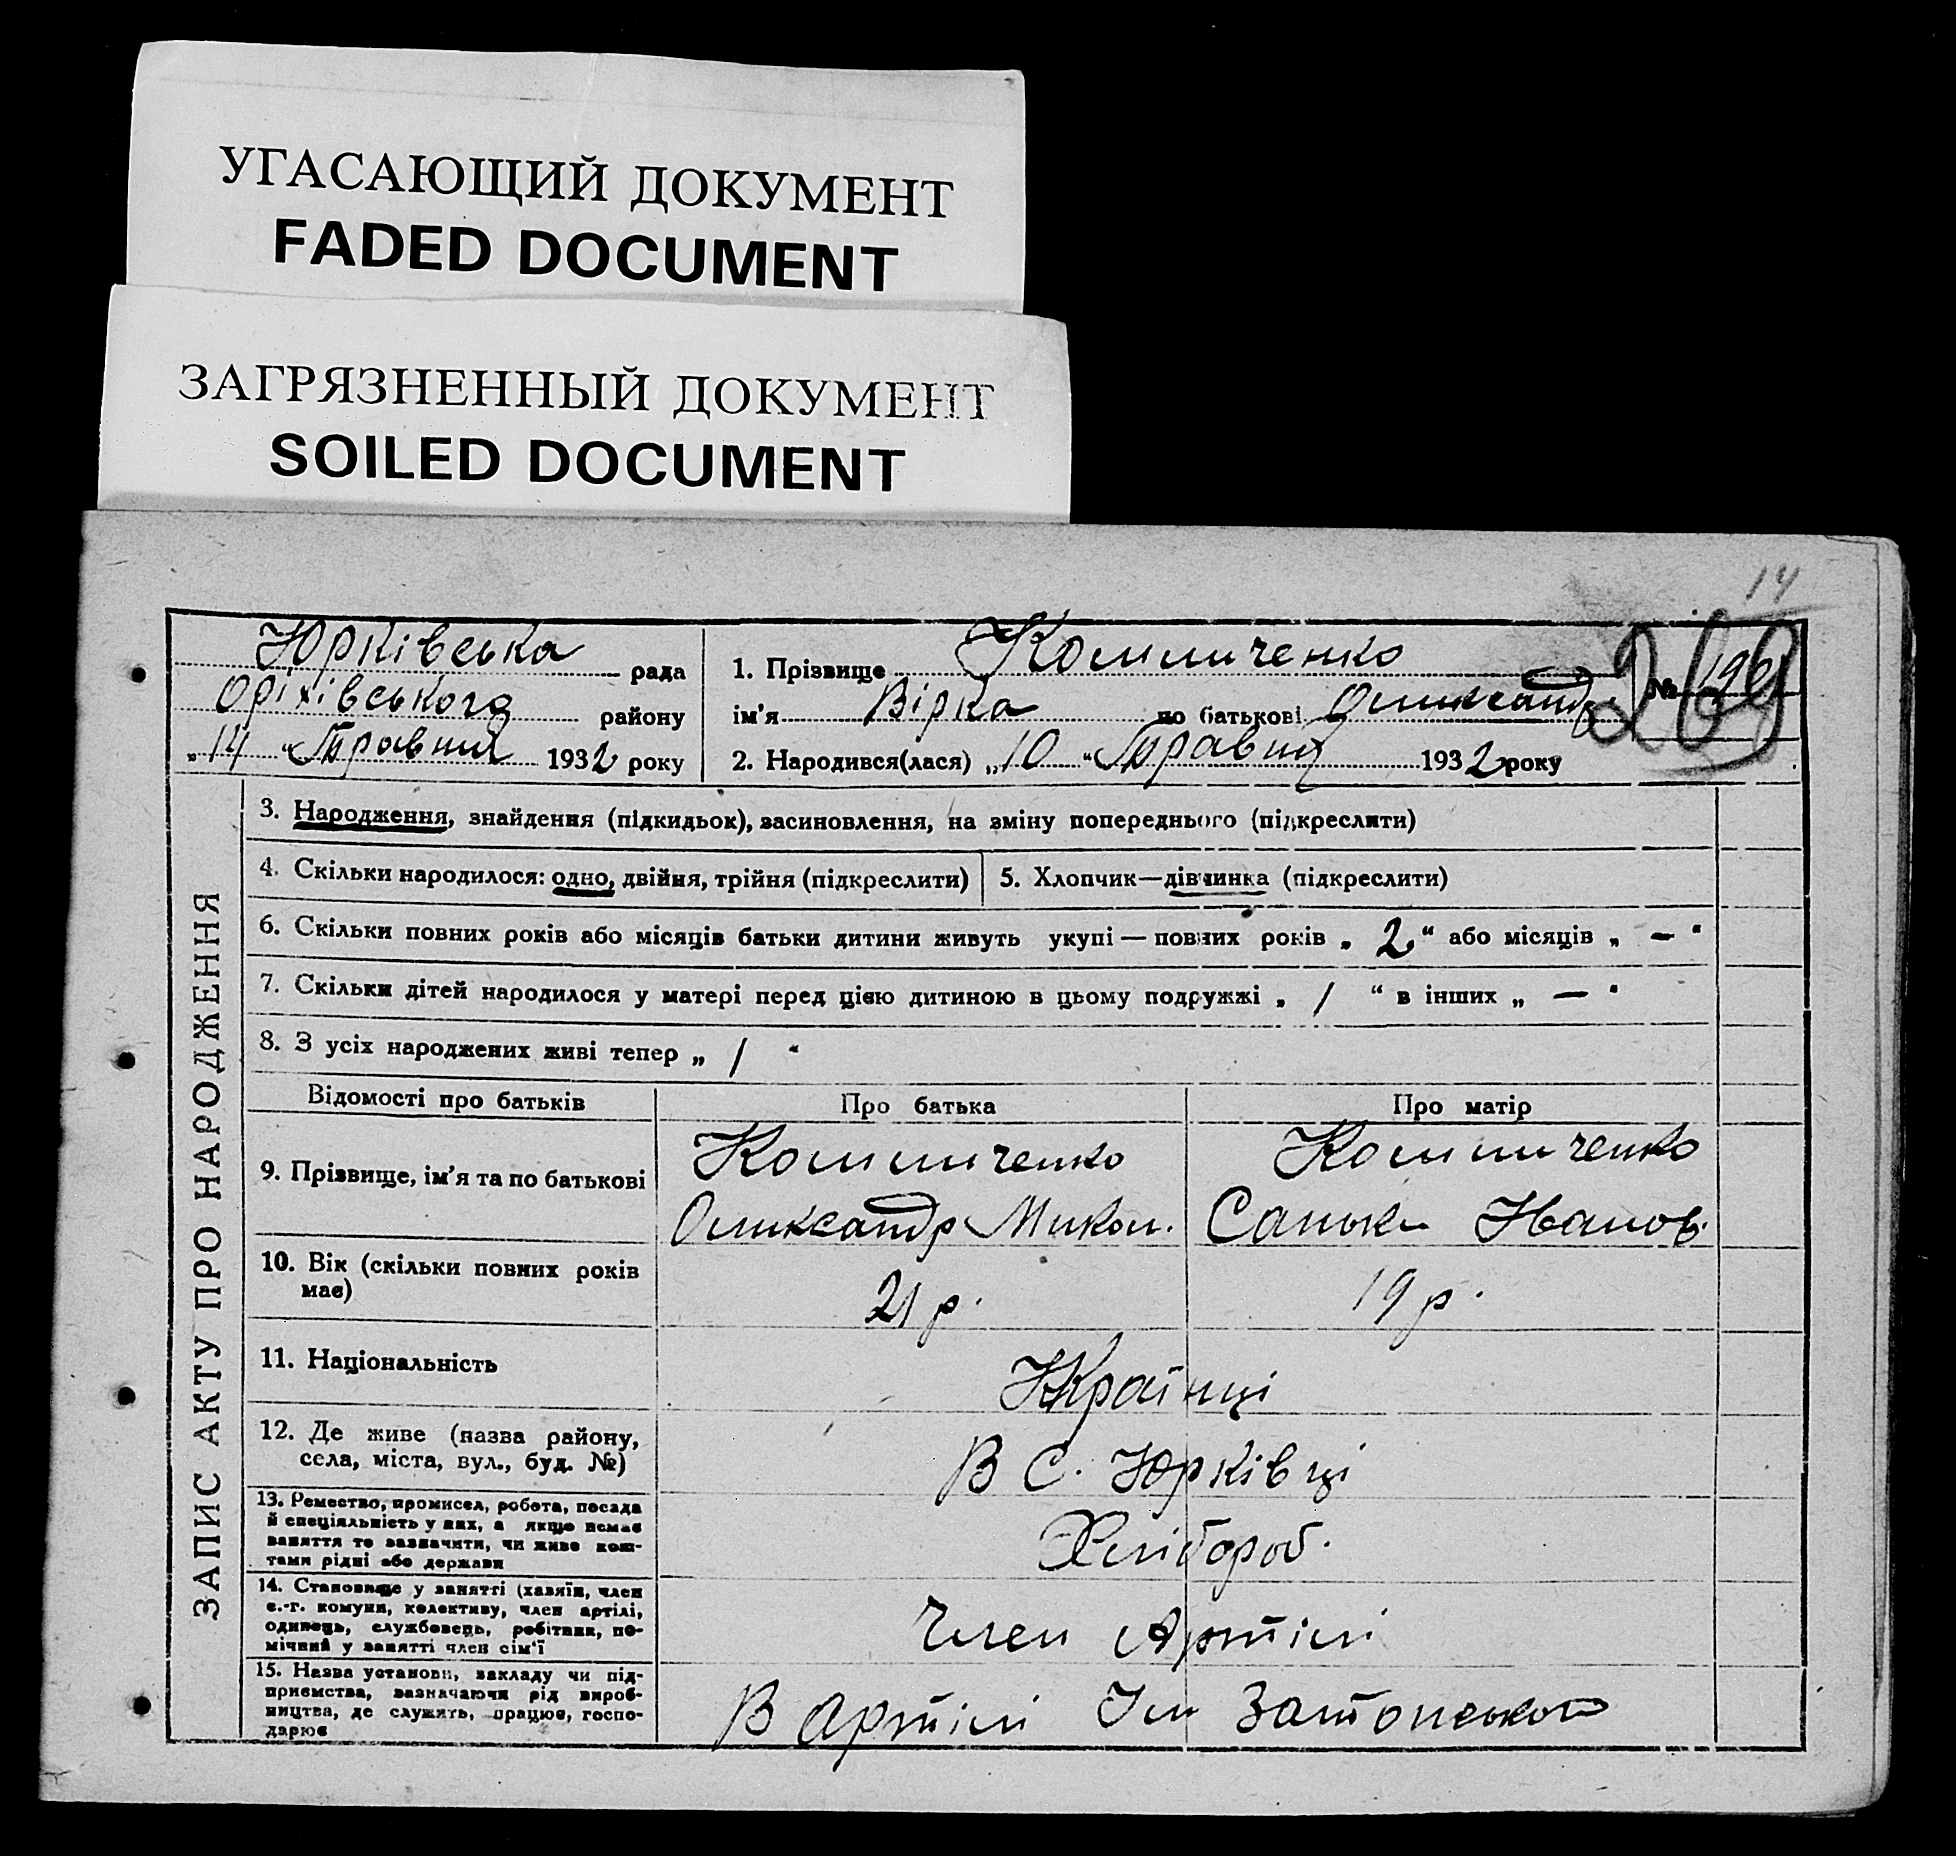 УГАСАЮЩИЙ ДОКУМЕНТ
FADED DOCUMENT
ЗАГРЯЗНЕННЫЙ ДОКУМЕНТ
SOILED DOCUMENT
14
Юрківська рада
Оріхівського району
„14“ Травня 1932 року
1. Прізвище Коминченко
№
ім'я Вірка по батькові Олександр
2. Народився(лася) „10“ Травня 1932 року
ЗАПИС АКТУ ПРО НАРОДЖЕННЯ
3. Народження, знайдення (підкидьок), засиновлення, на зміну попереднього (підкреслити)
4. Скільки народилося: одно, двійня, трійня (підкреслити)
5. Хлопчик—дівчинка (підкреслити)
6. Скільки повних років або місяців батьки дитини живуть укупі — повних років „ 2 “ або місяців „ — “
7. Скільки дітей народилося у матері перед цією дитиною в цьому подружжі „ / “ в інших „ — “
8. З усіх народжених живі тепер „ / “
Відомості про батьків Про батька Про матір
9. Прізвище, ім'я та по батькові
Коминченко
Олександр Микол.
Коминченко
Санька Іванов.
10. Вік (скільки повних років
має)
21 р. 19 р.
11. Національність
Українці
12. Де живе (назва району,
села, міста, вул., буд. №)
В С. Юрківці
13. Ремество, промисел, робота, посада
й спеціяльність у них, а якщо немає
заняття то зазначити, чи живе кош-
тами рідні або держави
Хлібороб.
14. Становище у занятті (хазяїн, член
с.-г. комуни, колективу, член артілі,
одинець, службовець, робітник, по-
мічний у занятті член сім'ї
Член Артілі
15. Назва установи, закладу чи під-
приємства, зазначаючи рід вироб-
ництва, де служить, працює, госпо-
дарює
В артілі Ім Затонського